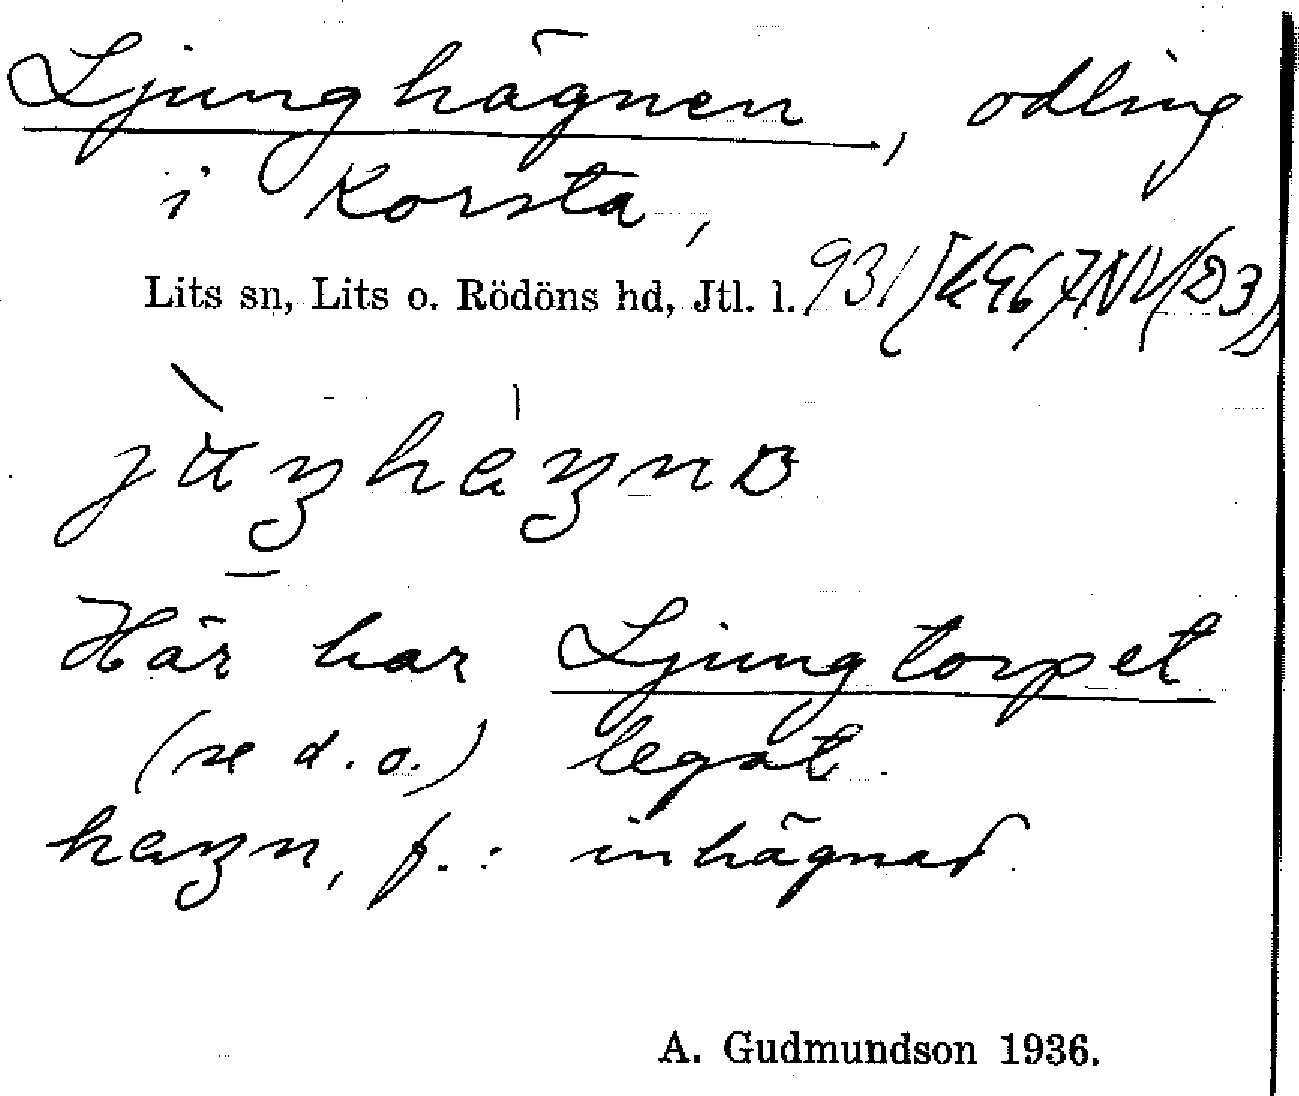 Ljunghägnen, odling
i Korsta,
Lits sn, Lits o. Rödöns hd, Jtl. l.
Här har Ljungtorpet
(se d.o.) legat.
f.: inhägnad.
A. Gudmundson 1936.